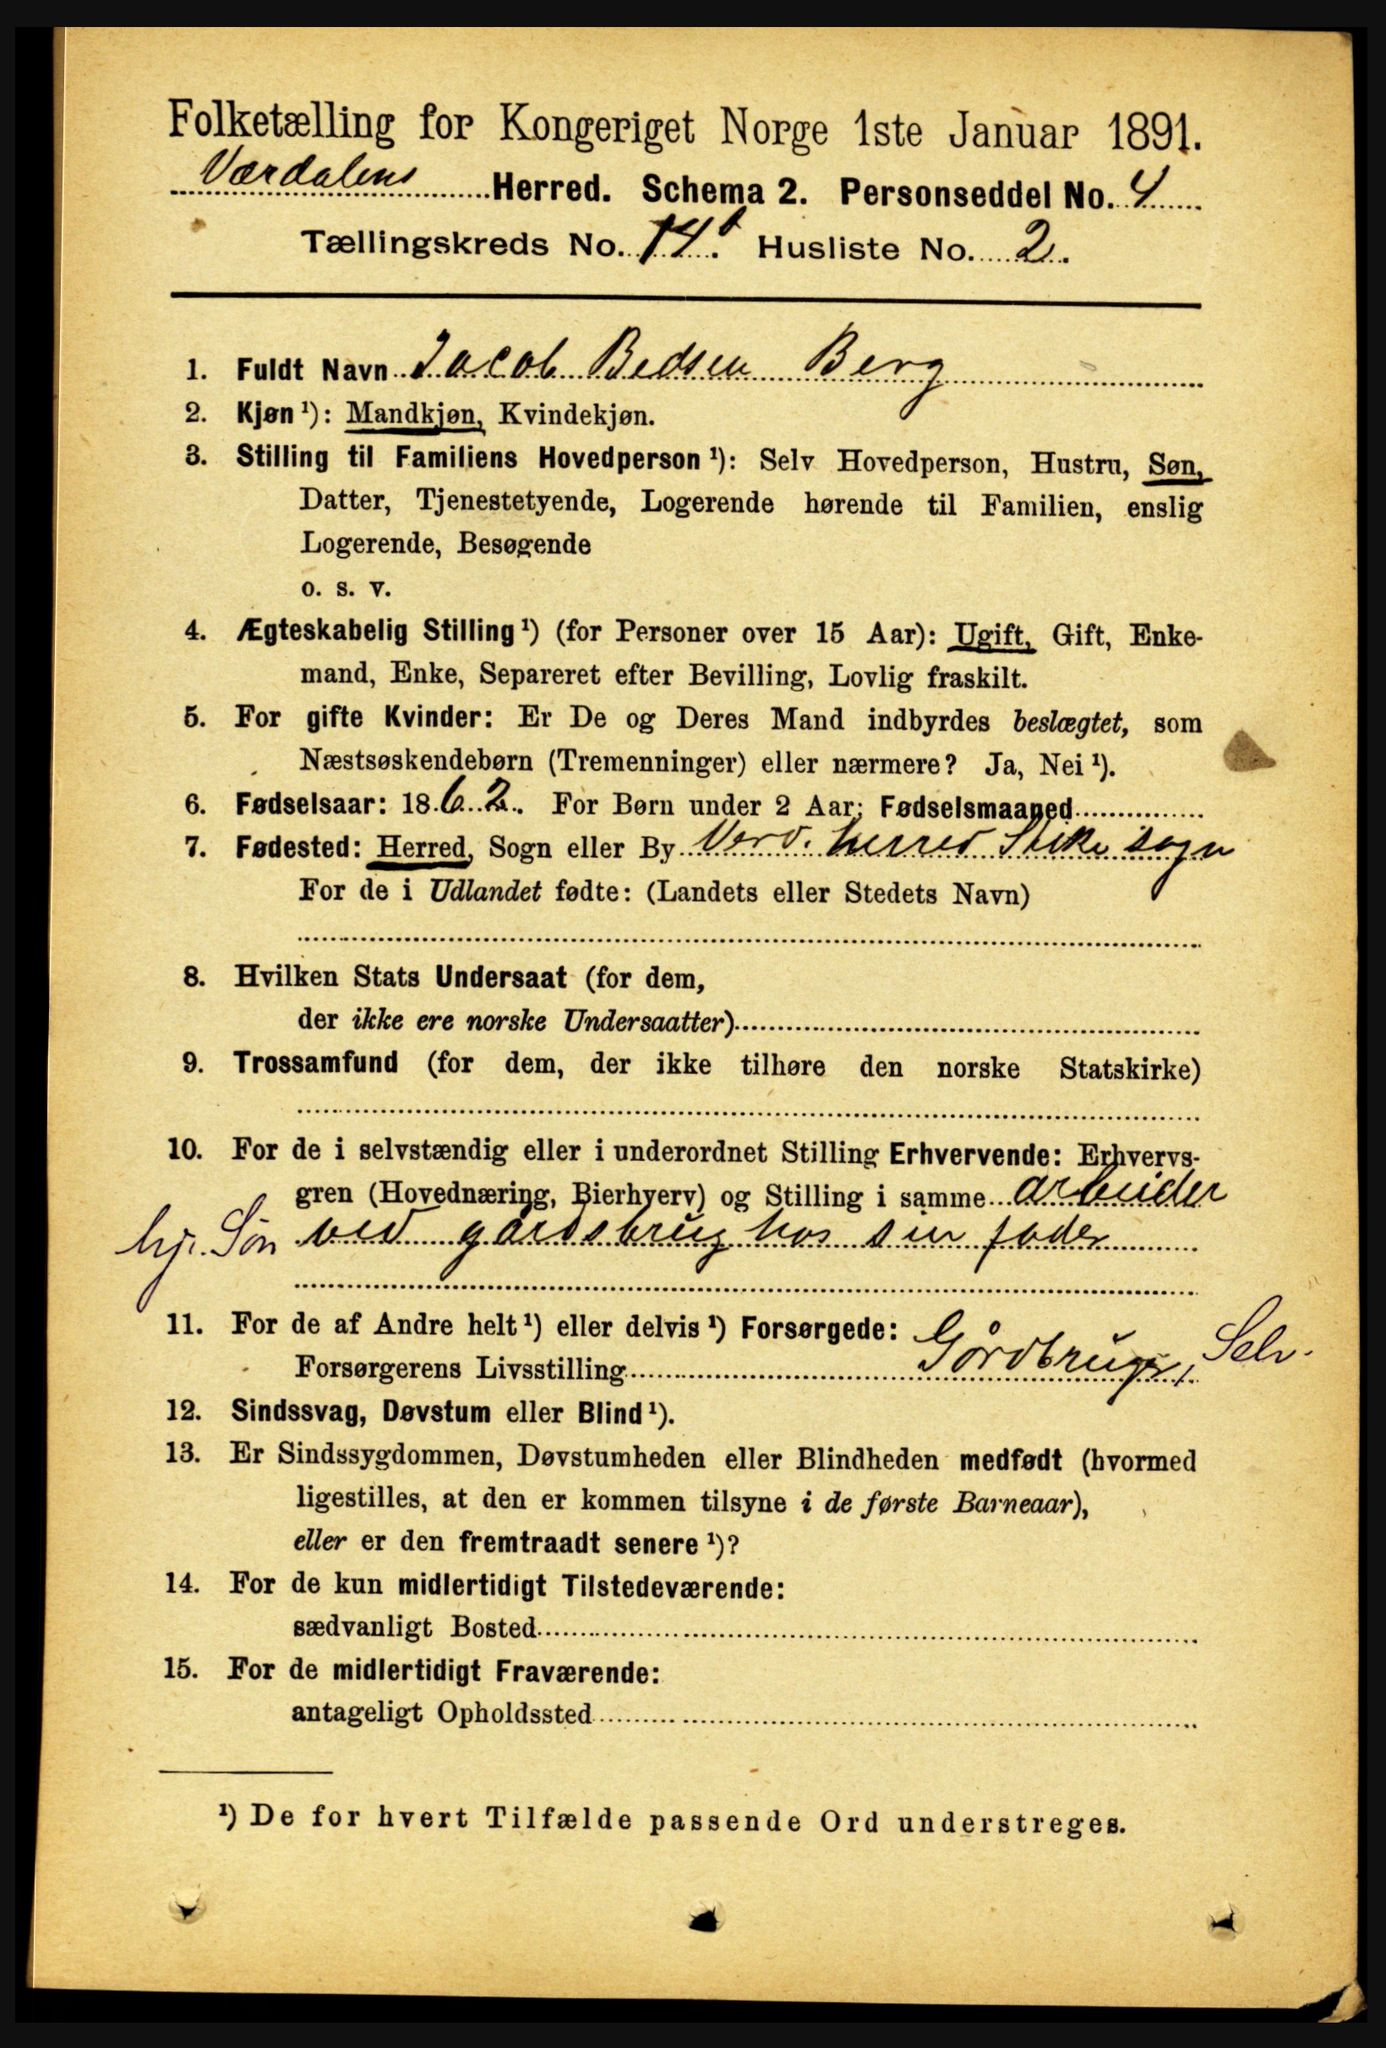 Folketælling for Kongeriget Norge 1ste Januar 1891.
Værdalens Herred. Schema 2. Personseddel No. 4
Tællingskreds No. 14. Husliste No. 2.
1. Fuldt Navn Jacob Bedsen Berg
2. Kjøn ¹): Mandkjøn, Kvindekjøn.
3. Stilling til Familiens Hovedperson ¹): Selv Hovedperson, Hustru, Søn,
Datter, Tjenestetyende, Logerende hørende til Familien, enslig
Logerende, Besøgende
o. s. v.
4. Ægteskabelig Stilling ¹) (for Personer over 15 Aar): Ugift, Gift, Enke-
mand, Enke, Separeret efter Bevilling, Lovlig fraskilt.
5. For gifte Kvinder: Er De og Deres Mand indbyrdes beslægtet, som
Næstsøskendebørn (Tremenninger) eller nærmere? Ja, Nei ¹).
6. Fødselsaar: 1862. For Børn under 2 Aar: Fødselsmaaned
7. Fødested: Herred, Sogn eller By Verd. herred sogn
For de i Udlandet fødte: (Landets eller Stedets Navn)
8. Hvilken Stats Undersaat (for dem,
der ikke ere norske Undersaatter)
9. Trossamfund (for dem, der ikke tilhøre den norske Statskirke)
10. For de i selvstændig eller i underordnet Stilling Erhvervende: Erhvervs-
gren (Hovednæring, Bierhverv) og Stilling i samme arbeider
hj. Søn ved gårdsbrug hos sin fader
11. For de af Andre helt ¹) eller delvis ¹) Forsørgede:
Forsørgerens Livsstilling Gårdbruger, Selv.
12. Sindssvag, Døvstum eller Blind ¹).
13. Er Sindssygdommen, Døvstumheden eller Blindheden medfødt (hvormed
ligestilles, at den er kommen tilsyne i de første Barneaar),
eller er den fremtraadt senere ¹)?
14. For de kun midlertidigt Tilstedeværende:
sædvanligt Bosted
15. For de midlertidigt Fraværende:
antageligt Opholdssted
¹) De for hvert Tilfælde passende Ord understreges.